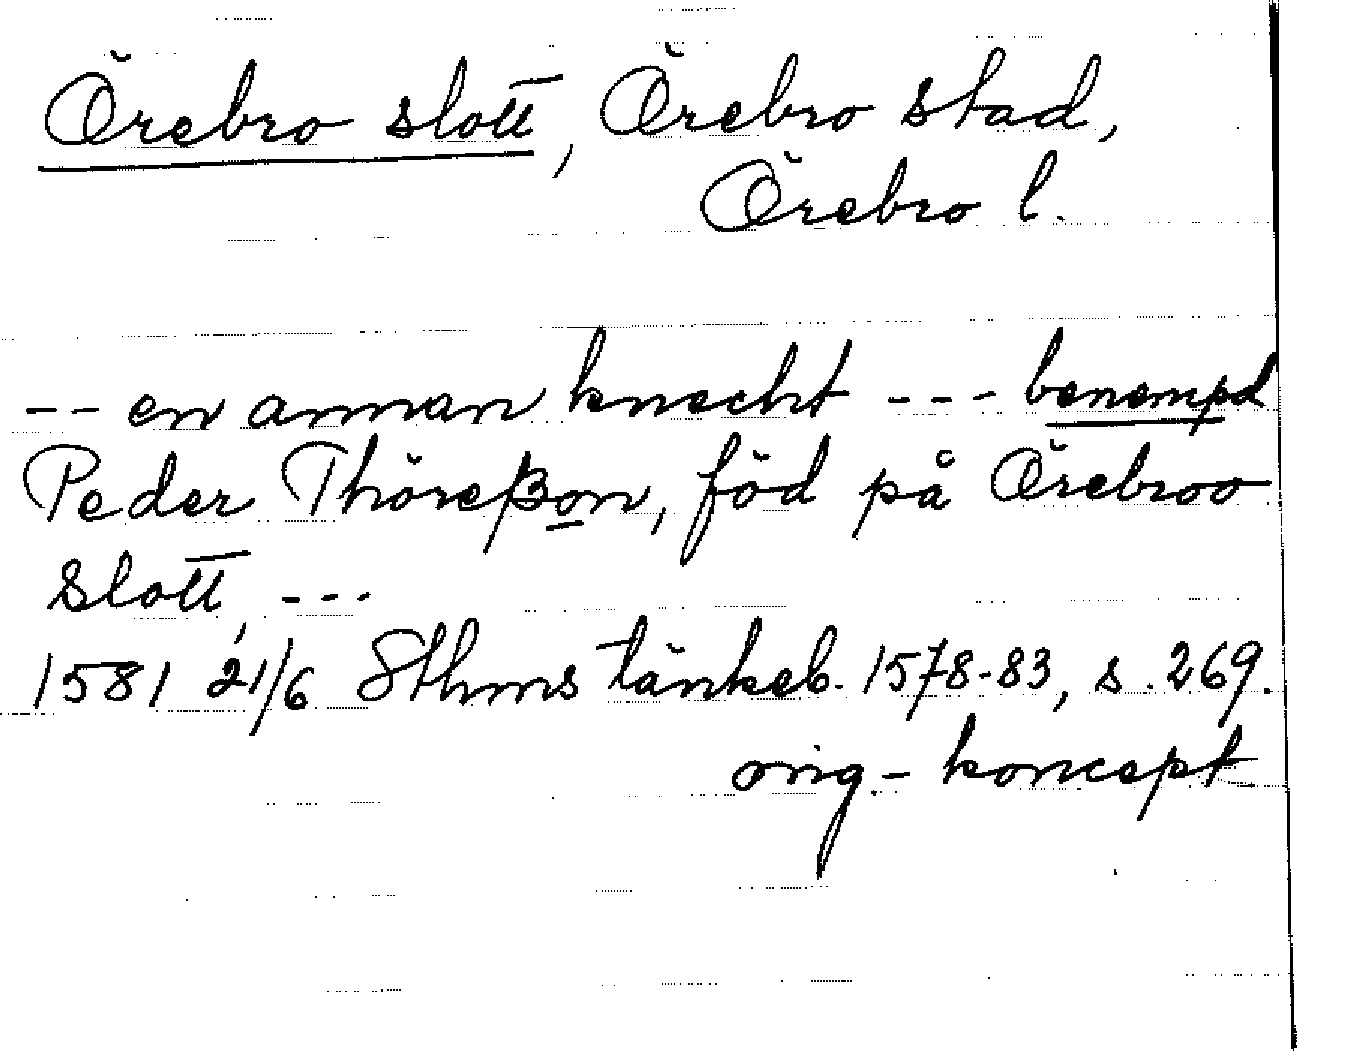 Örebro slott, Örebro stad,
Örebro l.
-- en annan knecht --- benempd
Peder Thöreßon, föd på Örebroo
slott, ---
1581 21/6 Sthms tänkeb. 1578-83, s. 269.
orig.- koncept